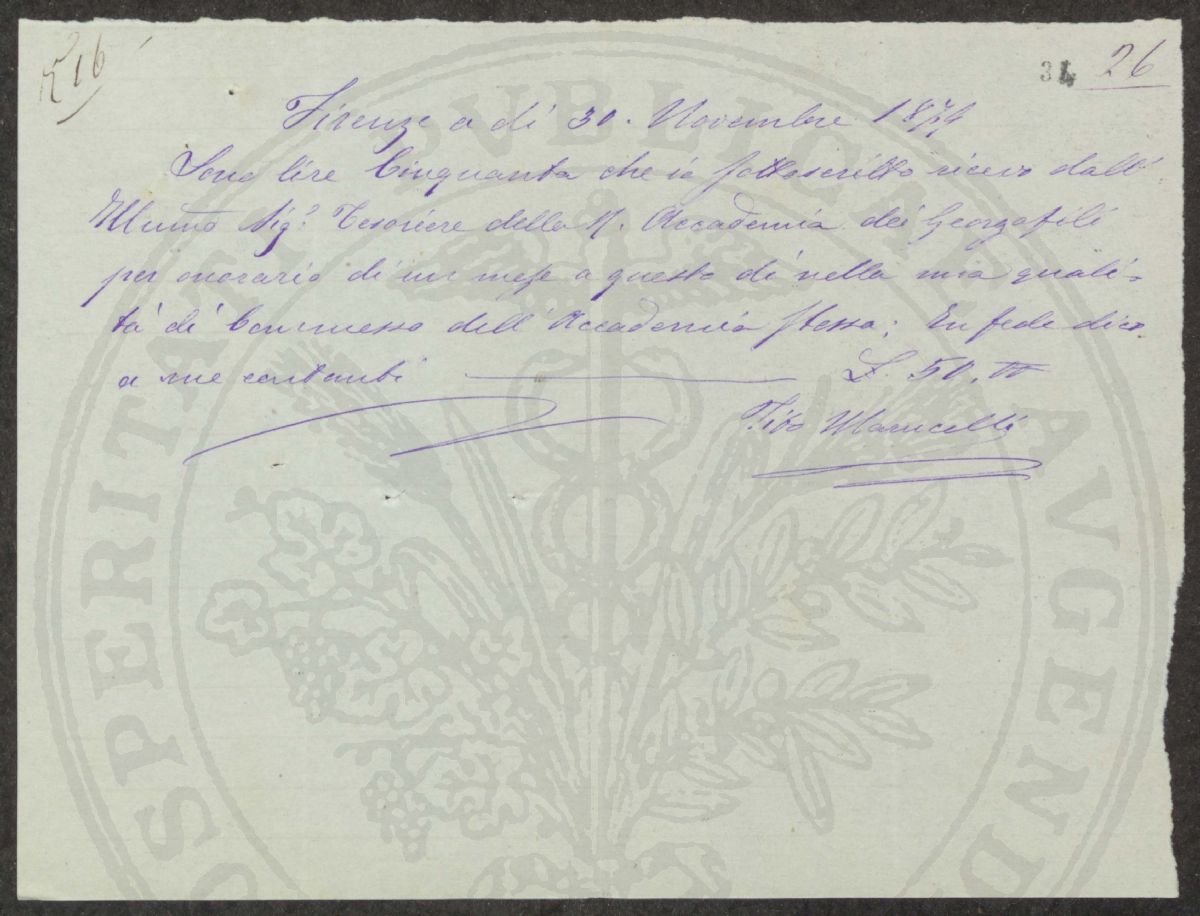 R 16
34 26
Firenze a dì 30. Novembre 1874
Sono lire Cinquanta che io sottoscritto ricevo dall'
Illmo Sigr. Tesoriere della R. Accademia dei Georgofili
per onorario di un mese a questo dì nella mia quali-
tà di Commesso dell'Accademia stessa; In fede dico
a me contanti L. 50. 00
Tito Marucelli
PROSPERITATI PVBLICAE AVGENDAE